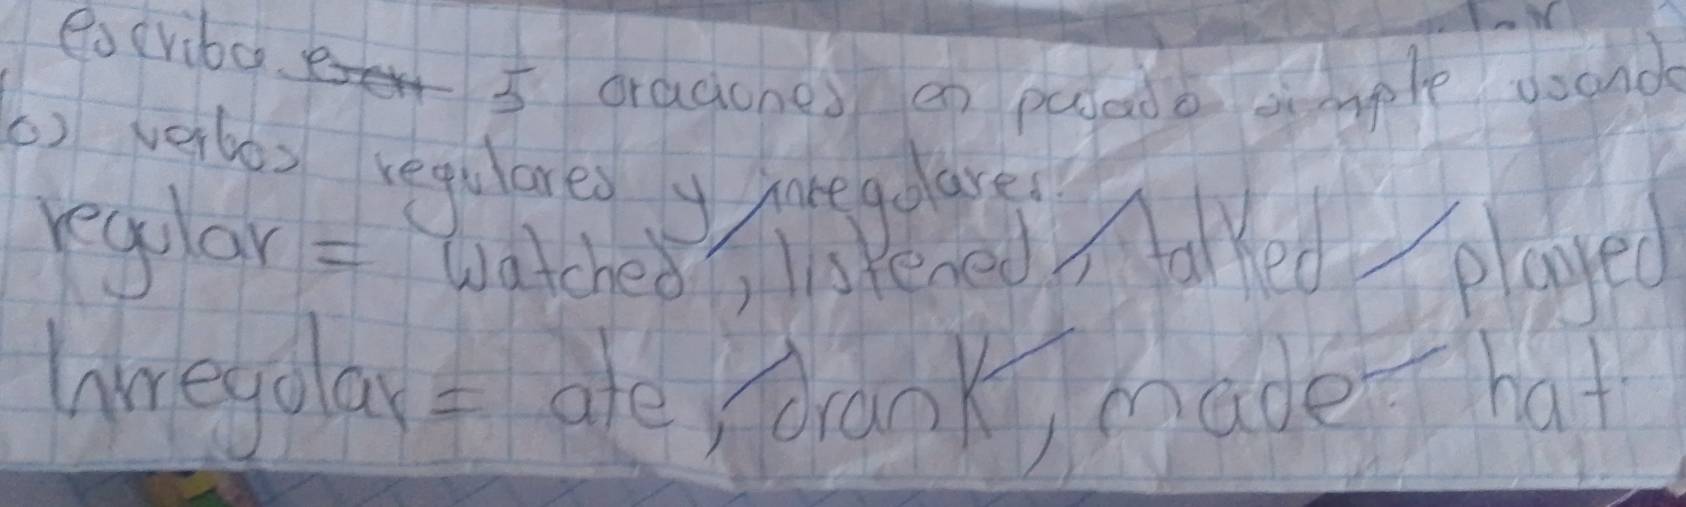 escriba 5 oraciones en pasado simple usando
los verbos regulares y inregolares.
regular = watched, listened, talked played
Inrregolar = ate, drank, made hat